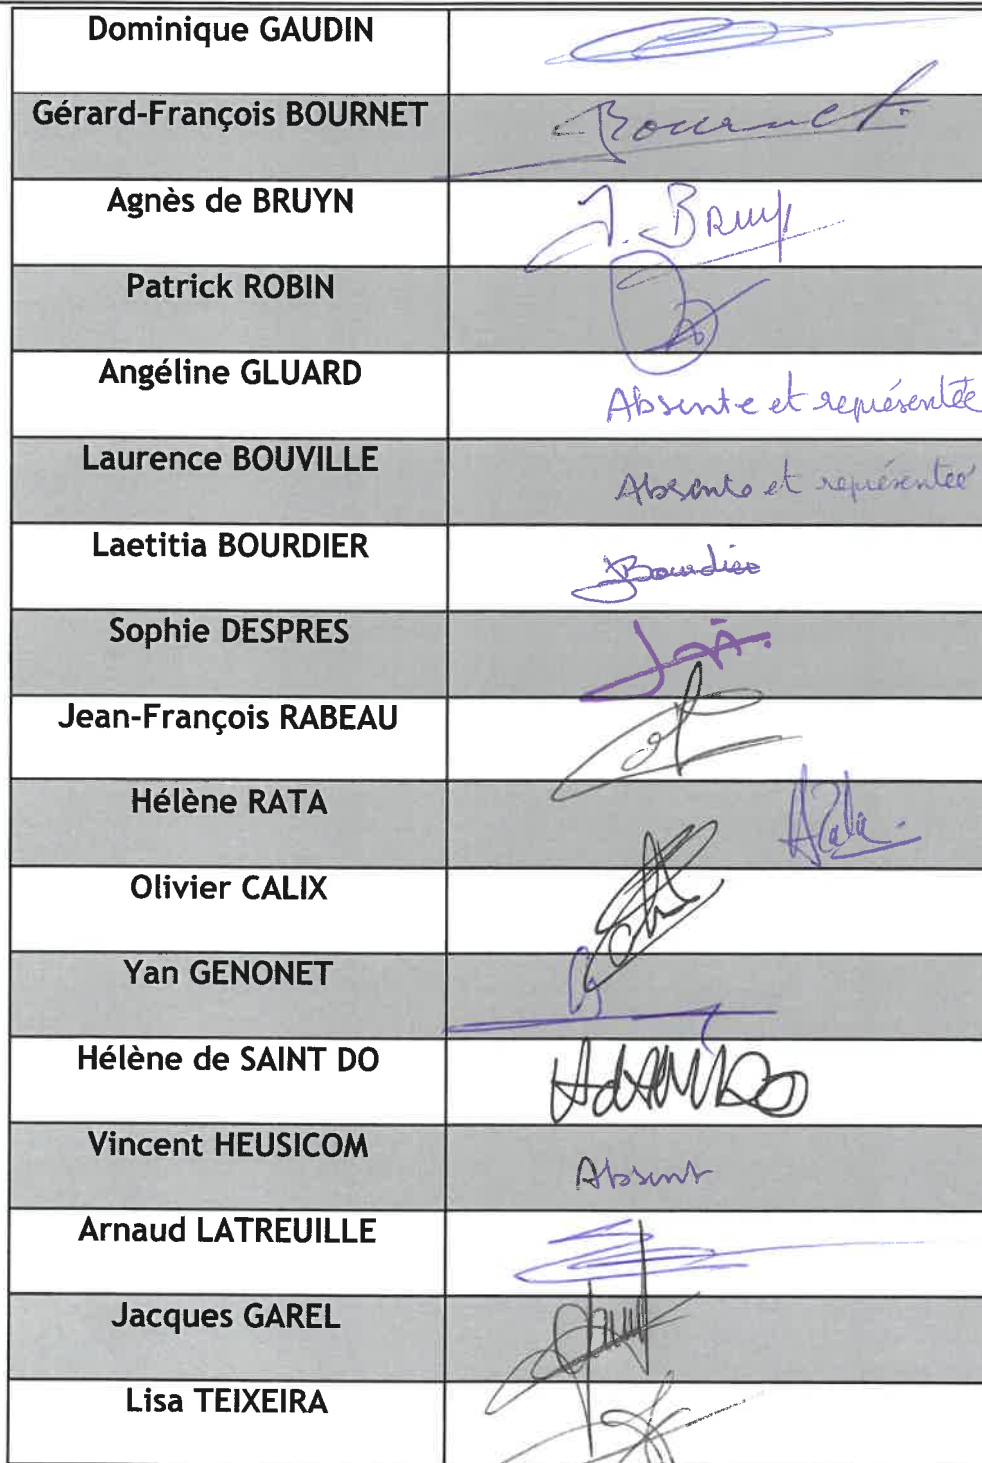 Dominique GAUDIN
Gérard-François BOURNET
Bournet.
Agnès de BRUYN
Patrick ROBIN
Angéline GLUARD
Absente et représentée
Laurence BOUVILLE
Absente et représentée
Laetitia BOURDIER
Bourdier
Sophie DESPRES
Jean-François RABEAU
Hélène RATA
Olivier CALIX
Yan GENONET
Hélène de SAINT DO
Vincent HEUSICOM
Absent
Arnaud LATREUILLE
Jacques GAREL
Lisa TEIXEIRA